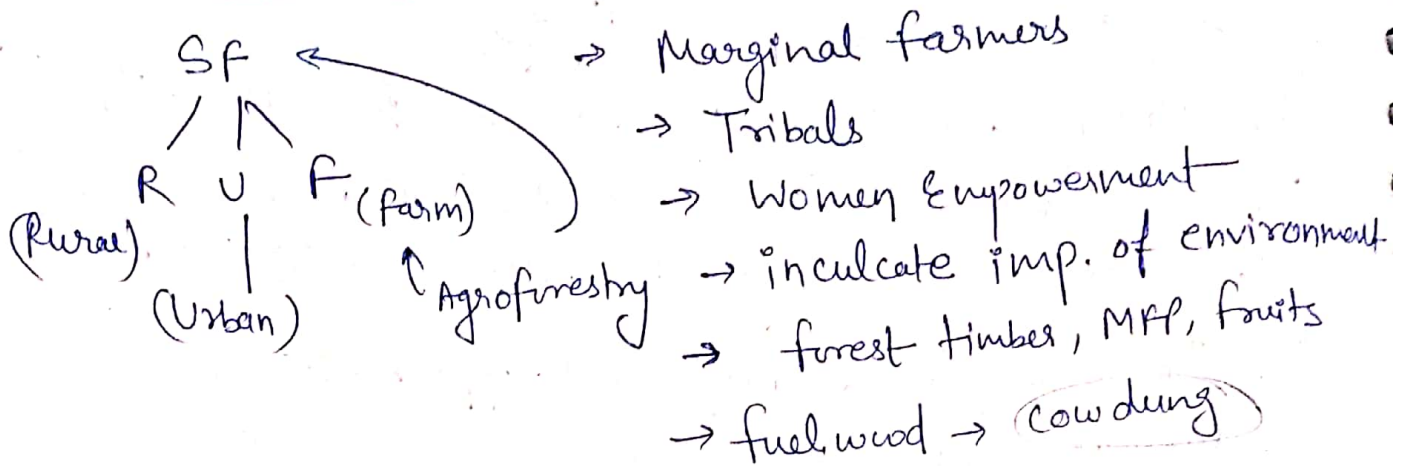 SF
R U F (farm)
(Rural)
(Urban)
Agroforestry
→ Marginal farmers
→ Tribals
→ Women Empowerment
→ inculcate imp. of environment
→ forest timber, MFP, fruits
→ fuelwood → cow dung